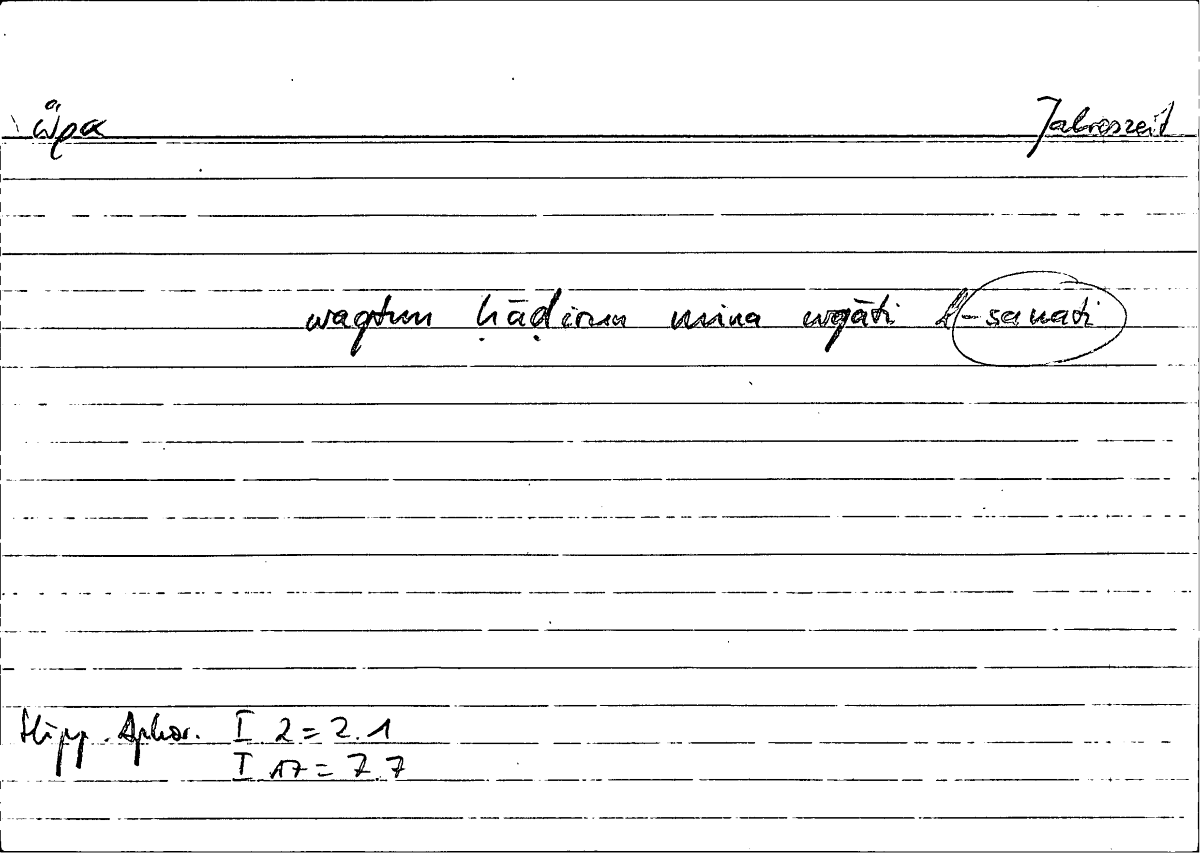 ὥρα Jahreszeit
waqtun ḥāḍirun mina wqāti l-sanati
Hipp. Aphor. I 2 = 2.1
I 17 = 7.7